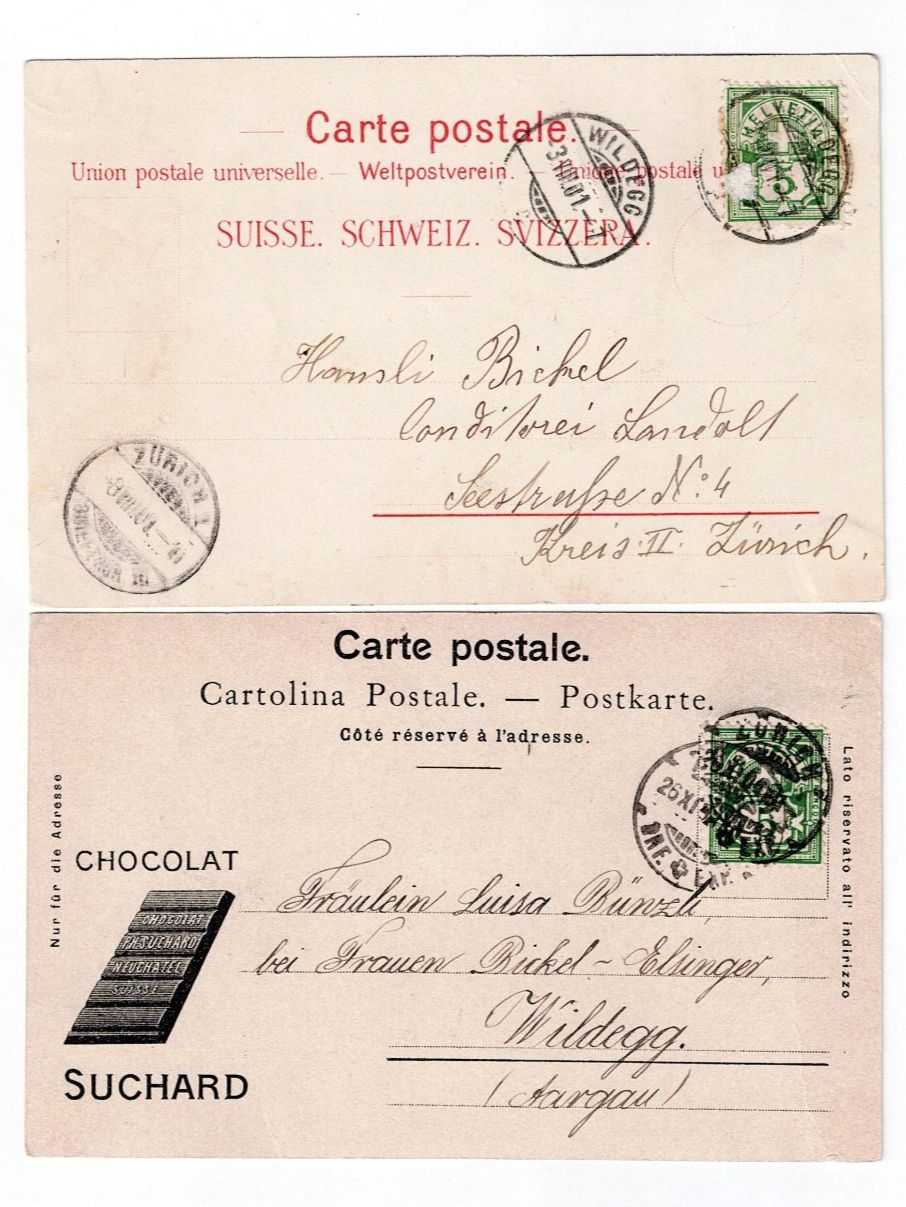 Carte postale.
Union postale universelle. — Weltpostverein. — Unione postale u
SUISSE. SCHWEIZ. SVIZZERA.
WILDEGG
HELVETIA
5
DEGG
Hansli Bickel
Conditorei Landolt
Seestraße No. 4
Kreis II. Zürich.
ZÜRICH 1
Carte postale.
Cartolina Postale. — Postkarte.
Côté réservé à l'adresse.
ZÜRICH
26 XI
BRF. EXP.
Nur für die Adresse
Lato riservato all' indirizzo
CHOCOLAT
CHOCOLAT
PH. SUCHARD
NEUCHATEL
SUISSE
SUCHARD
Fräulein Luisa Bünzli,
bei Frauen Bickel-Elsinger,
Wildegg.
(Aargau)